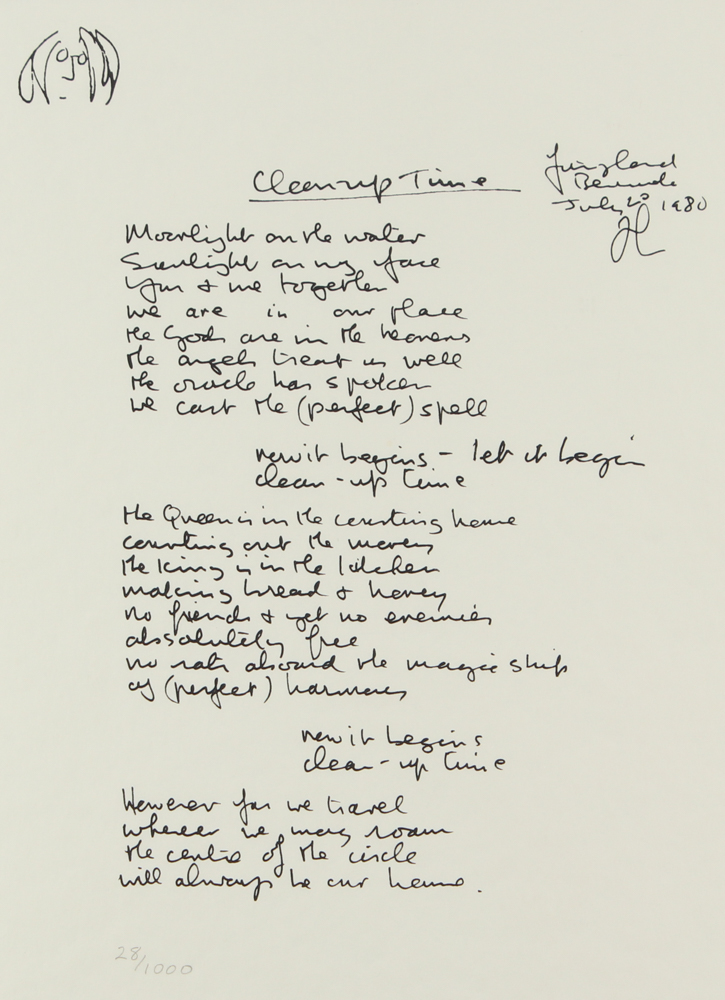 Clean-up Time
Bermuda
July 20 1980
JL
Moonlight on the water
Sunlight on my face
You & me together
we are in our place
the Gods are in the heavens
the angels treat us well
the oracle has spoken
we cast the (perfect) spell
now it begins - let it begin
clean-up time
the Queen is in the counting house
counting out the money
the King is in the kitchen
making bread & honey
no friends & yet no enemies
absolutely free
no rats aboard the magic ship
of (perfect) harmony
now it begins
clean-up time
However far we travel
wherever we may roam
the centre of the circle
will always be our home.
28/1000